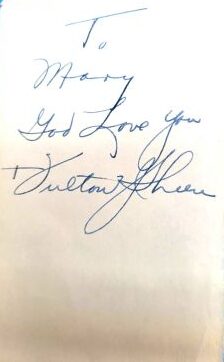 To
Mary
God Love You
+Fulton J Sheen